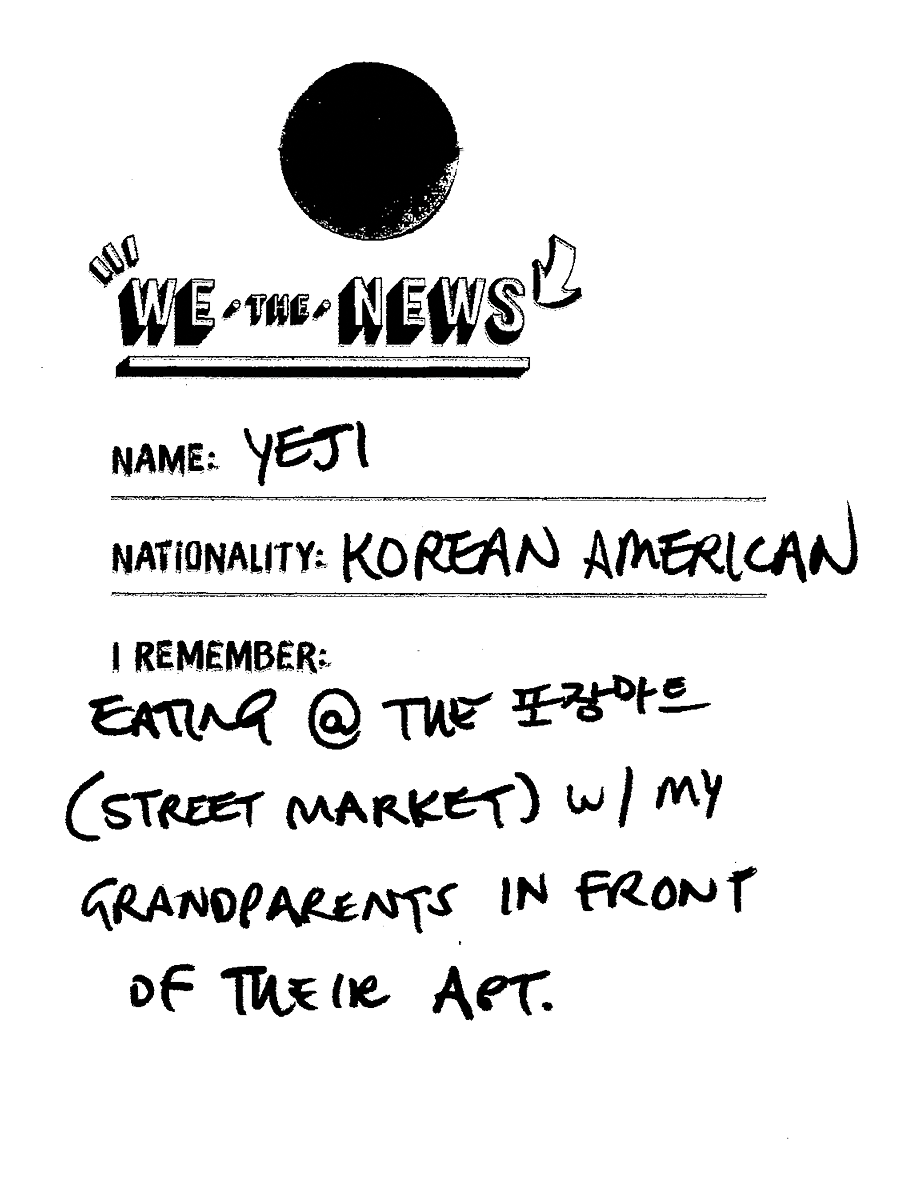 WE THE NEWS
NAME: YEJI
NATIONALITY: KOREAN AMERICAN
I REMEMBER:
EATING @ THE 포장마트
(STREET MARKET) W/ MY
GRANDPARENTS IN FRONT
OF THEIR APT.